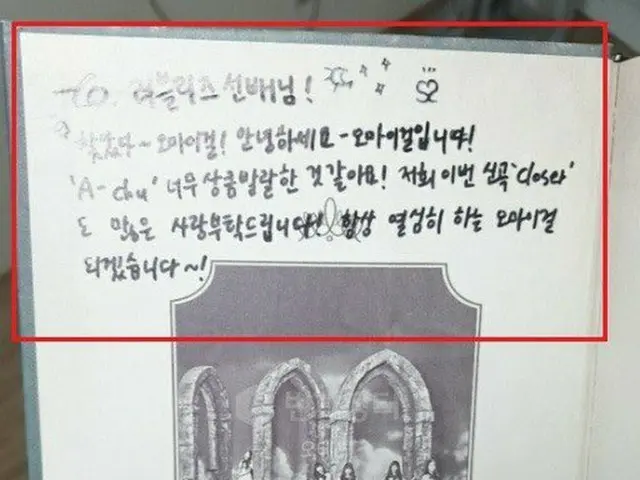 To. 러블리즈 선배님!
찾았다~ 오마이걸! 안녕하세요- 오마이걸입니다!
'A-chu' 너무 상큼발랄한 것 같아요! 저희 이번 신곡 'closer'
도 많은 사랑부탁드립니다! 항상 열심히 하는 오마이걸
되겠습니다~!